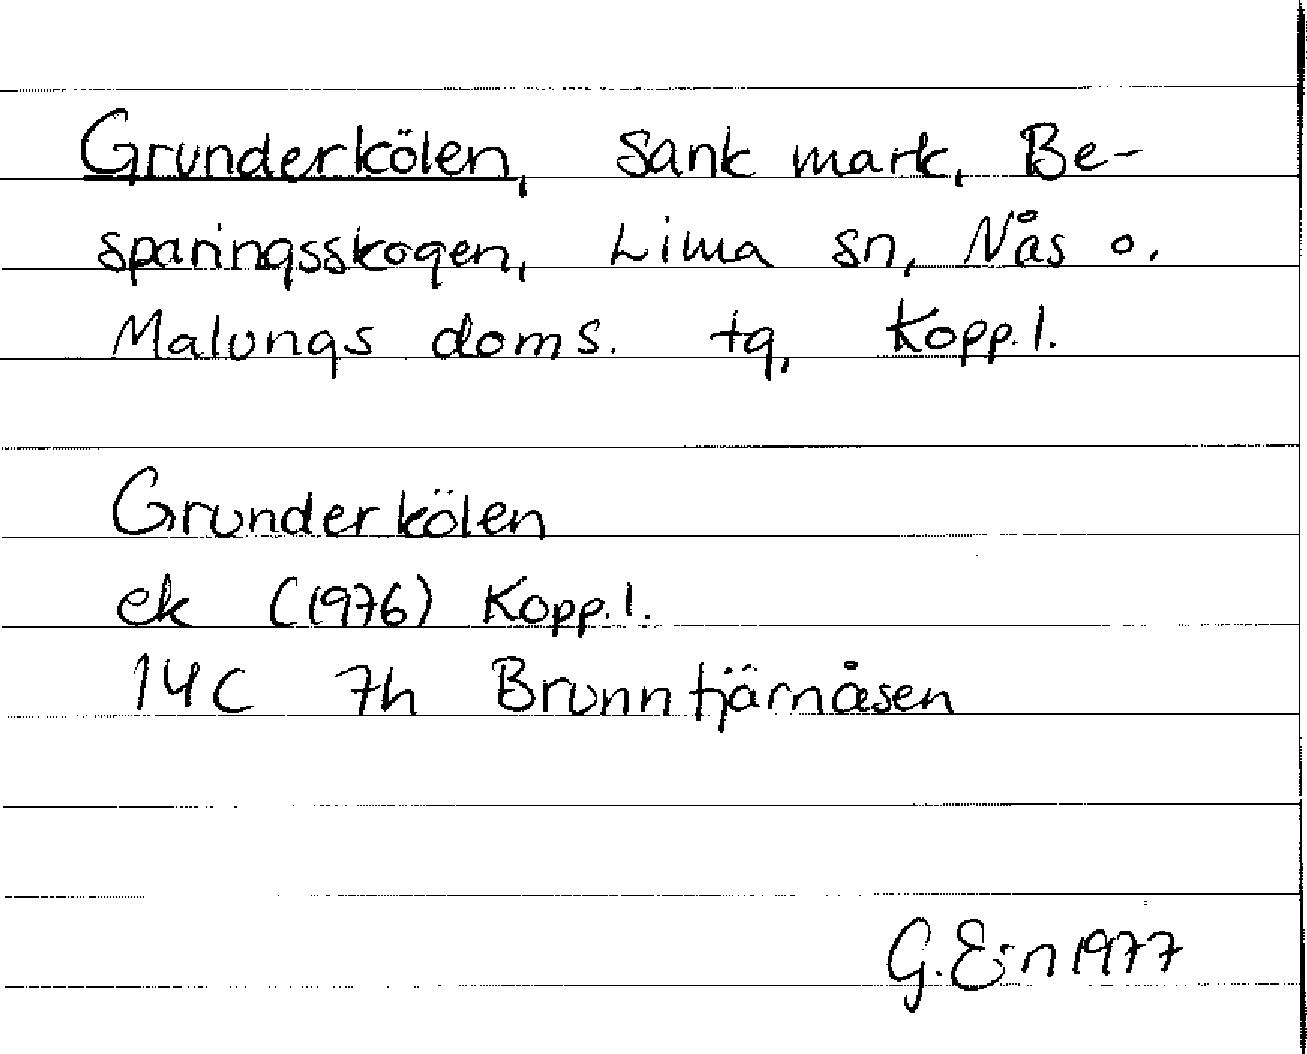 Grunderkölen, sank mark, Be-
sparingsskogen, Lima sn, Nås o.
Malungs doms. tg, Kopp.l.
Grunderkölen
ek (1976) Kopp.l.
14C 7h Brunntjärnåsen
G. E:n 1977